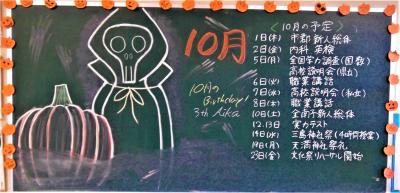 10月
10月の
Birthday!
5th Aika
<10月の予定>
1日(木) 市郡新人総体
2日(金) 内科 英検
5日(月) 全国学力調査(国数)
高校説明会(県立)
6日(火) 職業講話
7日(水) 高校説明会(私立)
8日(木) 職業講話
10日(土) 全南予新人総体
12.13日 実力テスト
14日(水) 三島神社祭(4時間授業)
19日(月) 天満神社祭礼
23日(金) 文化祭リハーサル開始